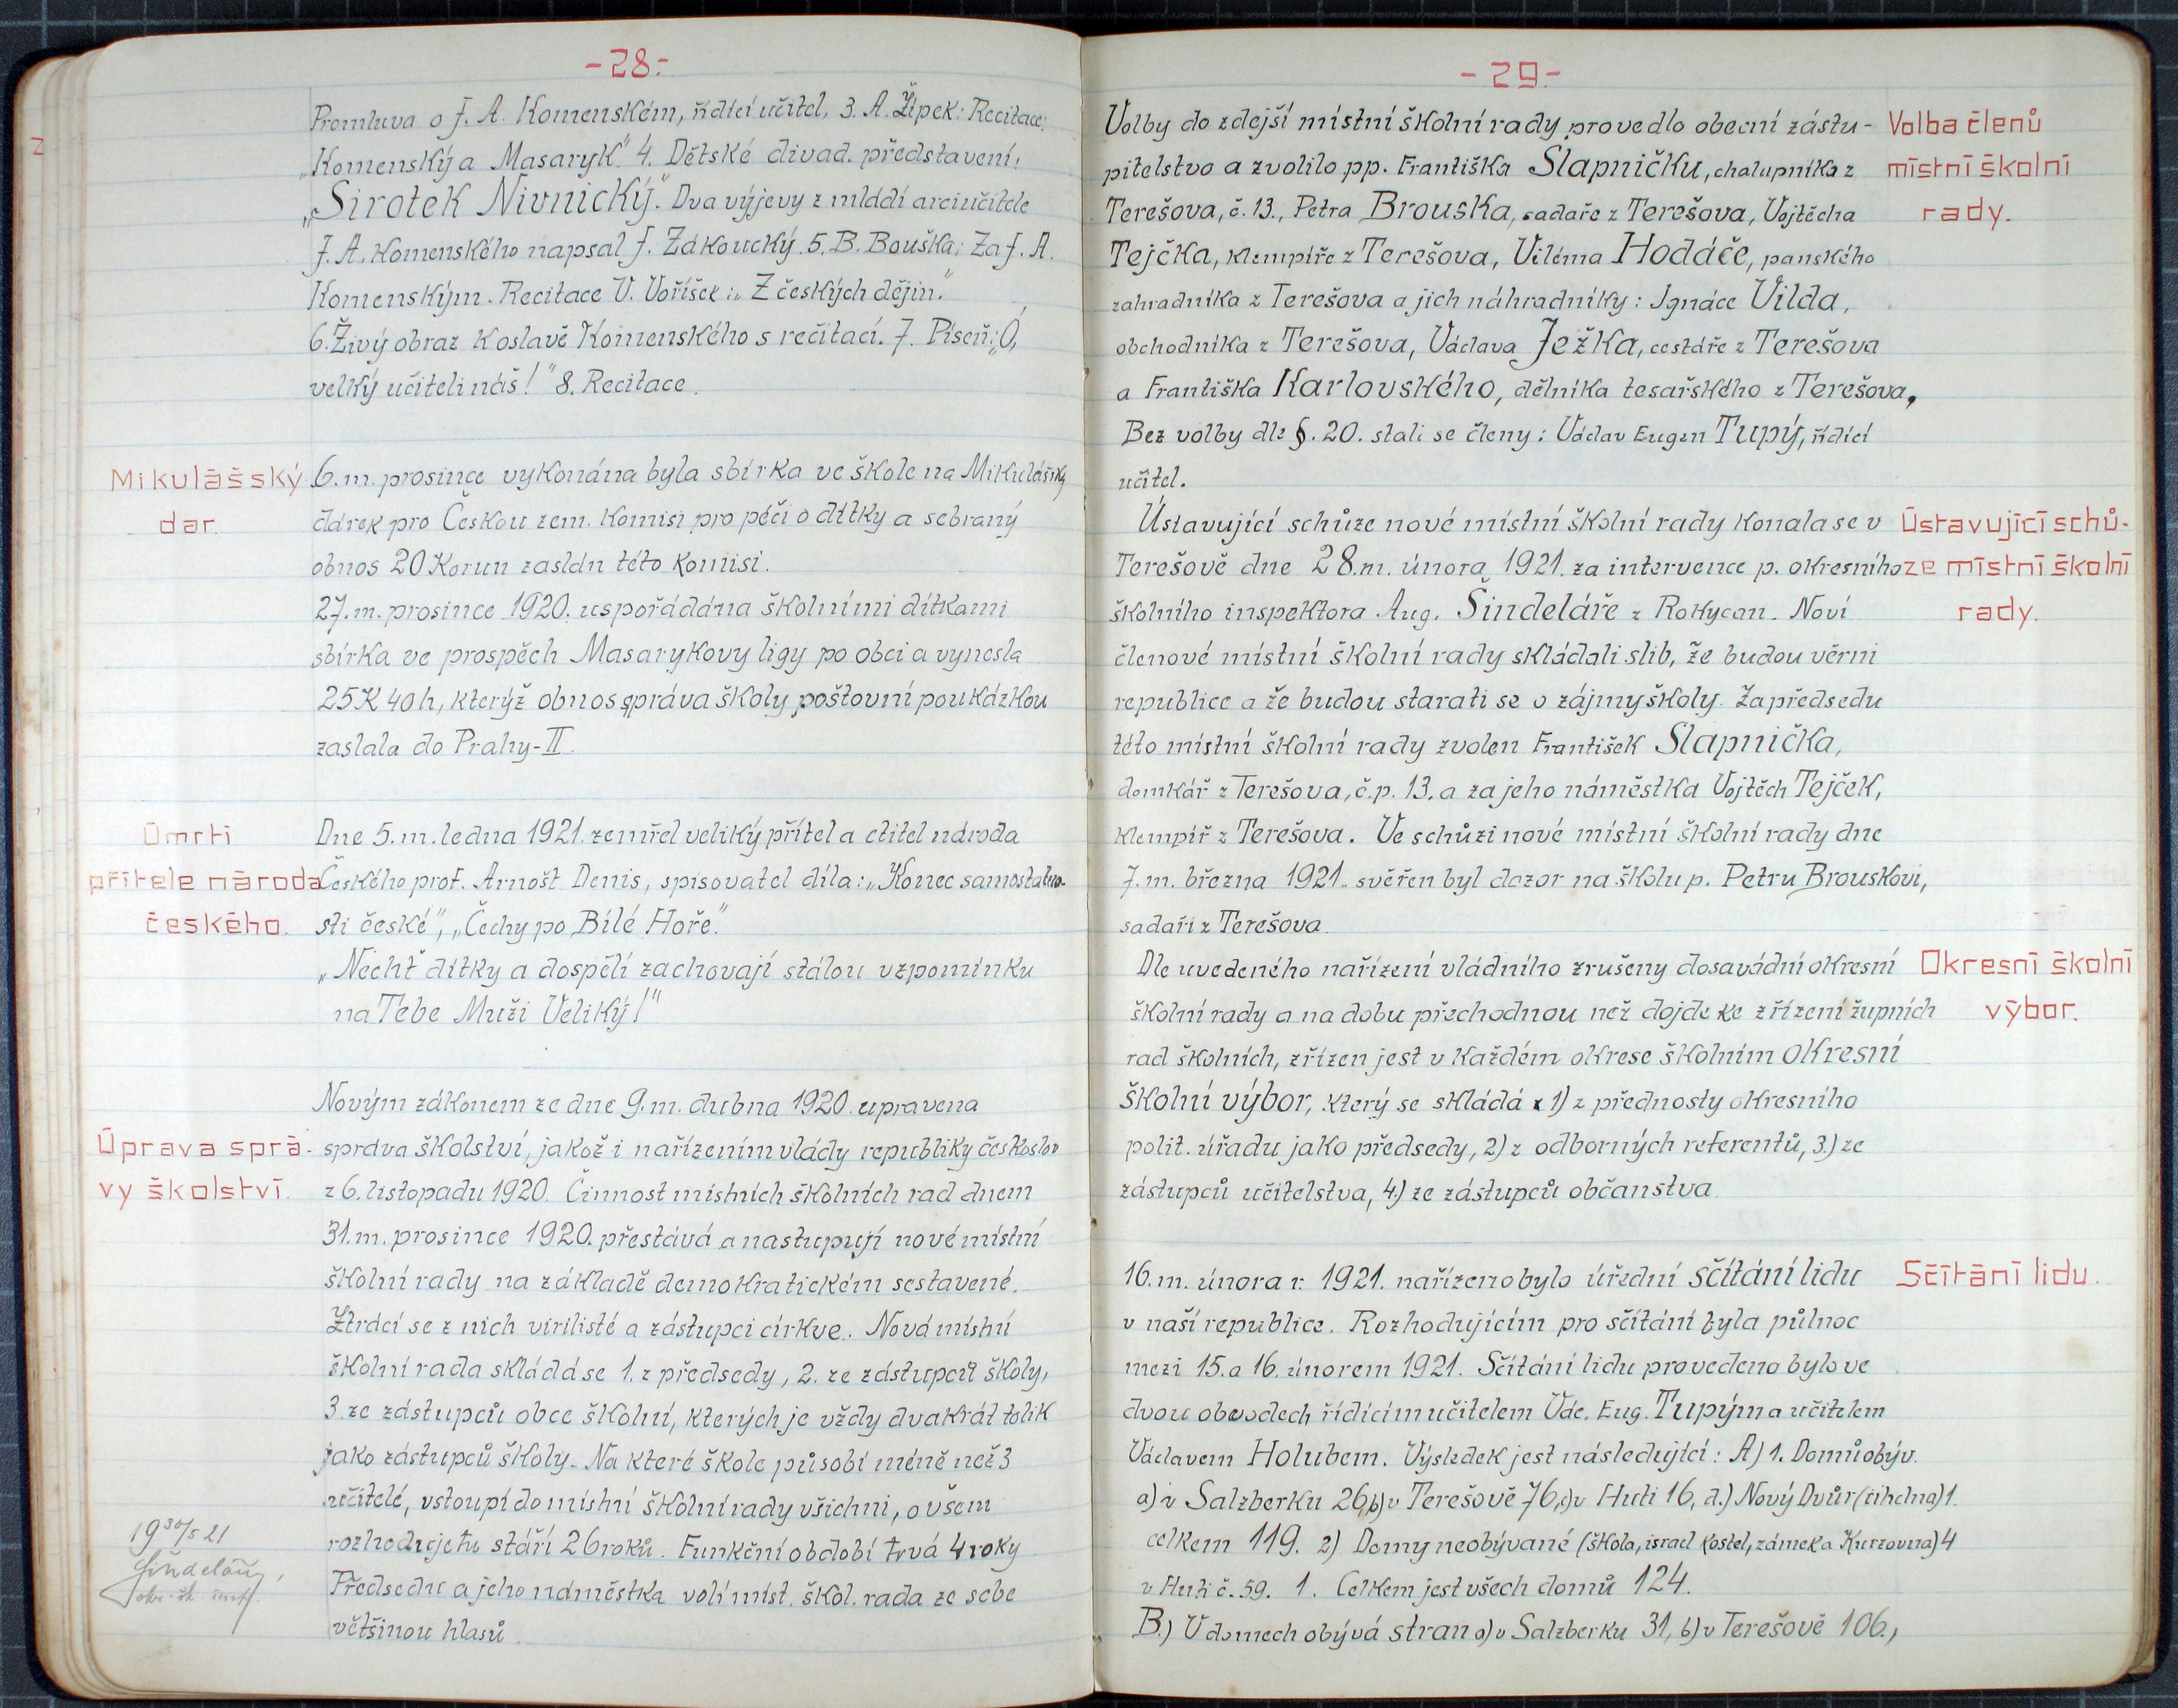 -28.-
Promluva o J. A. Komenském, řídící učitel, 3. A. Žípek: Recitace:
„Komenský a Masaryk." 4. Dětské divad. představení:
„Sirotek Nivnický." Dva výjevy z mládí arciučitele
J. A. Komenského napsal J. Zákoucký. 5. B. Bouška: Za J. A.
Komenským. Recitace V. Voříšek: „Z českých dějin."
6. Živý obraz k oslavě Komenského s recitací. 7. Píseň: „Ó,
velký učiteli náš!" 8. Recitace.
Mikulášský
dar.
6. m. prosince vykonána byla sbírka ve škole na Mikulášský
dárek pro Českou zem. komisi pro péči o dítky a sebraný
obnos 20 Korun zaslán této komisi.
27. m. prosince 1920. uspořádána školními dítkami
sbírka ve prospěch Masarykovy ligy po obci a vynesla
25 K 40 h, kterýž obnos správa školy poštovní poukázkou
zaslala do Prahy-II.
Úmrtí
přítele národa
českého.
Dne 5. m. ledna 1921. zemřel veliký přítel a ctitel národa
Českého prof. Arnošt Denis, spisovatel díla: „Konec samostatno-
sti české", „Čechy po Bílé Hoře."
„Nechť dítky a dospělí zachovají stálou vzpomínku
na Tebe Muži Veliký!"
Úprava sprá-
vy školství.
Novým zákonem ze dne 9. m. dubna 1920. upravena
správa školství, jakož i nařízením vlády republiky českoslov
z 6. listopadu 1920. Činnost místních školních rad dnem
31. m. prosince 1920. přestává a nastupují nové místní
školní rady na základě demokratickém sestavené.
Ztrácí se z nich virilisté a zástupci církve. Nová místní
školní rada skládá se 1. z předsedy, 2. ze zástupců školy,
3. ze zástupců obce školní, kterých je vždy dvakrát tolik
jako zástupců školy. Na které škole působí méně než 3
učitelé, vstoupí do místní školní rady všichni, ovšem
rozhoduje tu stáří 26 roků. Funkční období trvá 4 roky
Předsedu a jeho náměstka volí míst. škol. rada ze sebe
většinou hlasů.
19 30/5 21
Šindelář,
okr. šk. insp.
-29-
Volby do zdejší místní školní rady provedlo obecní zástu-
pitelstvo a zvolilo pp. Františka Slapničku, chalupníka z
Terešova, č. 13., Petra Brouska, sadaře z Terešova, Vojtěcha
Tejčka, klempíře z Terešova, Viléma Hodáče, panského
zahradníka z Terešova a jich náhradníky: Ignáce Vilda,
obchodníka z Terešova, Václava Ježka, cestáře z Terešova
a Františka Karlovského, dělníka tesařského z Terešova.
Bez volby dle §. 20. stali se členy: Václav Eugen Tupý, řídící
učitel.
Volba členů
místní školní
rady.
Ustavující schůze nové místní školní rady konala se v
Terešově dne 28. m. února 1921. za intervence p. okresního
školního inspektora Aug. Šindeláře z Rokycan. Noví
členové místní školní rady skládali slib, že budou věrni
republice a že budou starati se o zájmy školy. Za předsedu
této místní školní rady zvolen František Slapnička,
domkář z Terešova, č.p. 13. a za jeho náměstka Vojtěch Tejček,
klempíř z Terešova. Ve schůzi nové místní školní rady dne
7. m. března 1921. svěřen byl dozor na školu p. Petru Brouskovi,
sadaři z Terešova.
Ústavující schů-
ze místní školní
rady.
Dle uvedeného nařízení vládního zrušeny dosavádní okresní
školní rady a na dobu přechodnou než dojde ke zřízení župních
rad školních, zřízen jest v každém okrese školním okresní
školní výbor, který se skládá 1) z přednosty okresního
polit. úřadu jako předsedy, 2) z odborných referentů, 3.) ze
zástupců učitelstva, 4.) ze zástupců občanstva.
Okresní školní
výbor.
16. m. února r. 1921. nařízeno bylo úřední sčítání lidu
v naší republice. Rozhodujícím pro sčítání byla půlnoc
mezi 15. a 16. únorem 1921. Sčítání lidu provedeno bylo ve
dvou obvodech řídícím učitelem Vác. Eug. Tupým a učitelem
Václavem Holubem. Výsledek jest následující: A) 1. Domů obýv.
a) v Salzberku 26, b) v Terešově 76, c) v Huti 16, d.) Nový Dvůr (cihelna) 1.
celkem 119. 2) Domy neobývané (škola, israel kostel, zámek a Kurzovna) 4
v Huti č. 59. 1. Celkem jest všech domů 124.
B.) V domech obývá stran a) v Salzberku 31, b) v Terešově 106.,
Sčítání lidu.